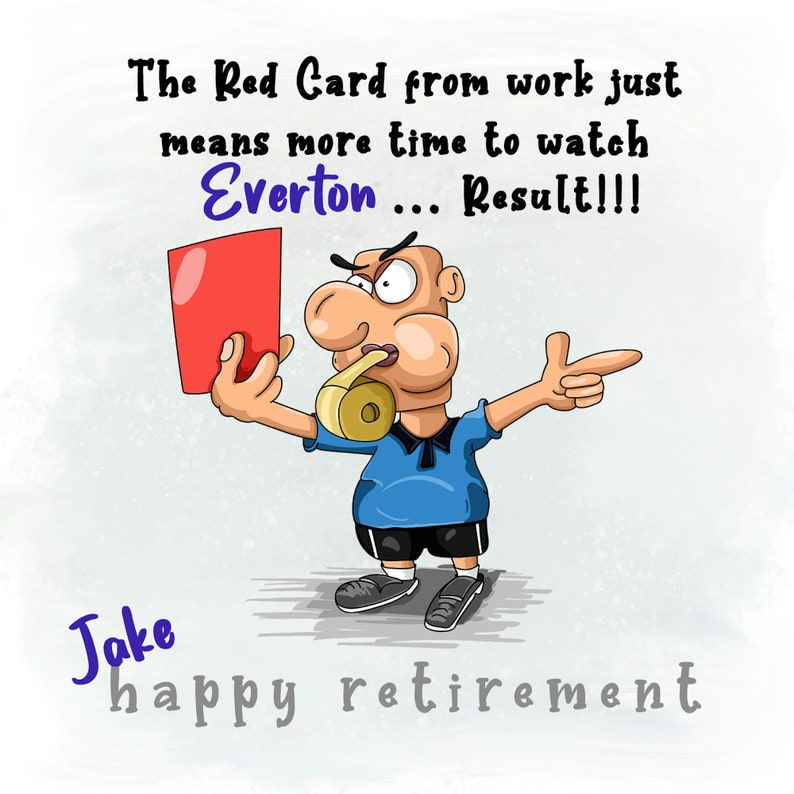 The Red Card from work just
means more time to watch
Everton ... Result!!!
Jake
happy retirement